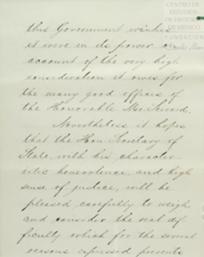 this Government wishes
it were in its power on
account of the very high
consideration it owes for
the many good offices of
the Honorable Mr. Seward.
Nevertheless it hopes
that the Hon. Secretary of
State, with his character-
istic benevolence and high
sense of justice, will be
pleased carefully to weigh
and consider the real dif-
ficulty which for the several
reasons expressed presents